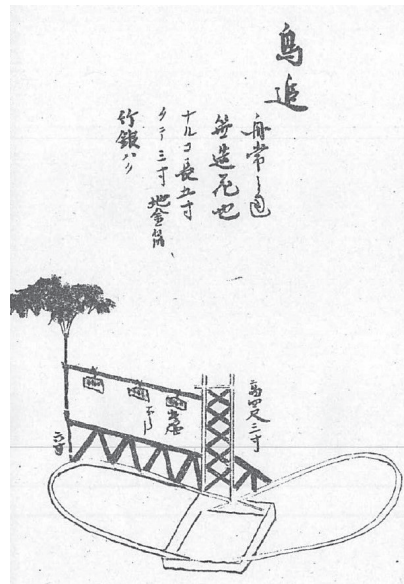 鳥追
舟常ノ通
笹造花也
ナルコ長五寸
タテ三寸
竹銀ハリ
高四尺三寸
六寸